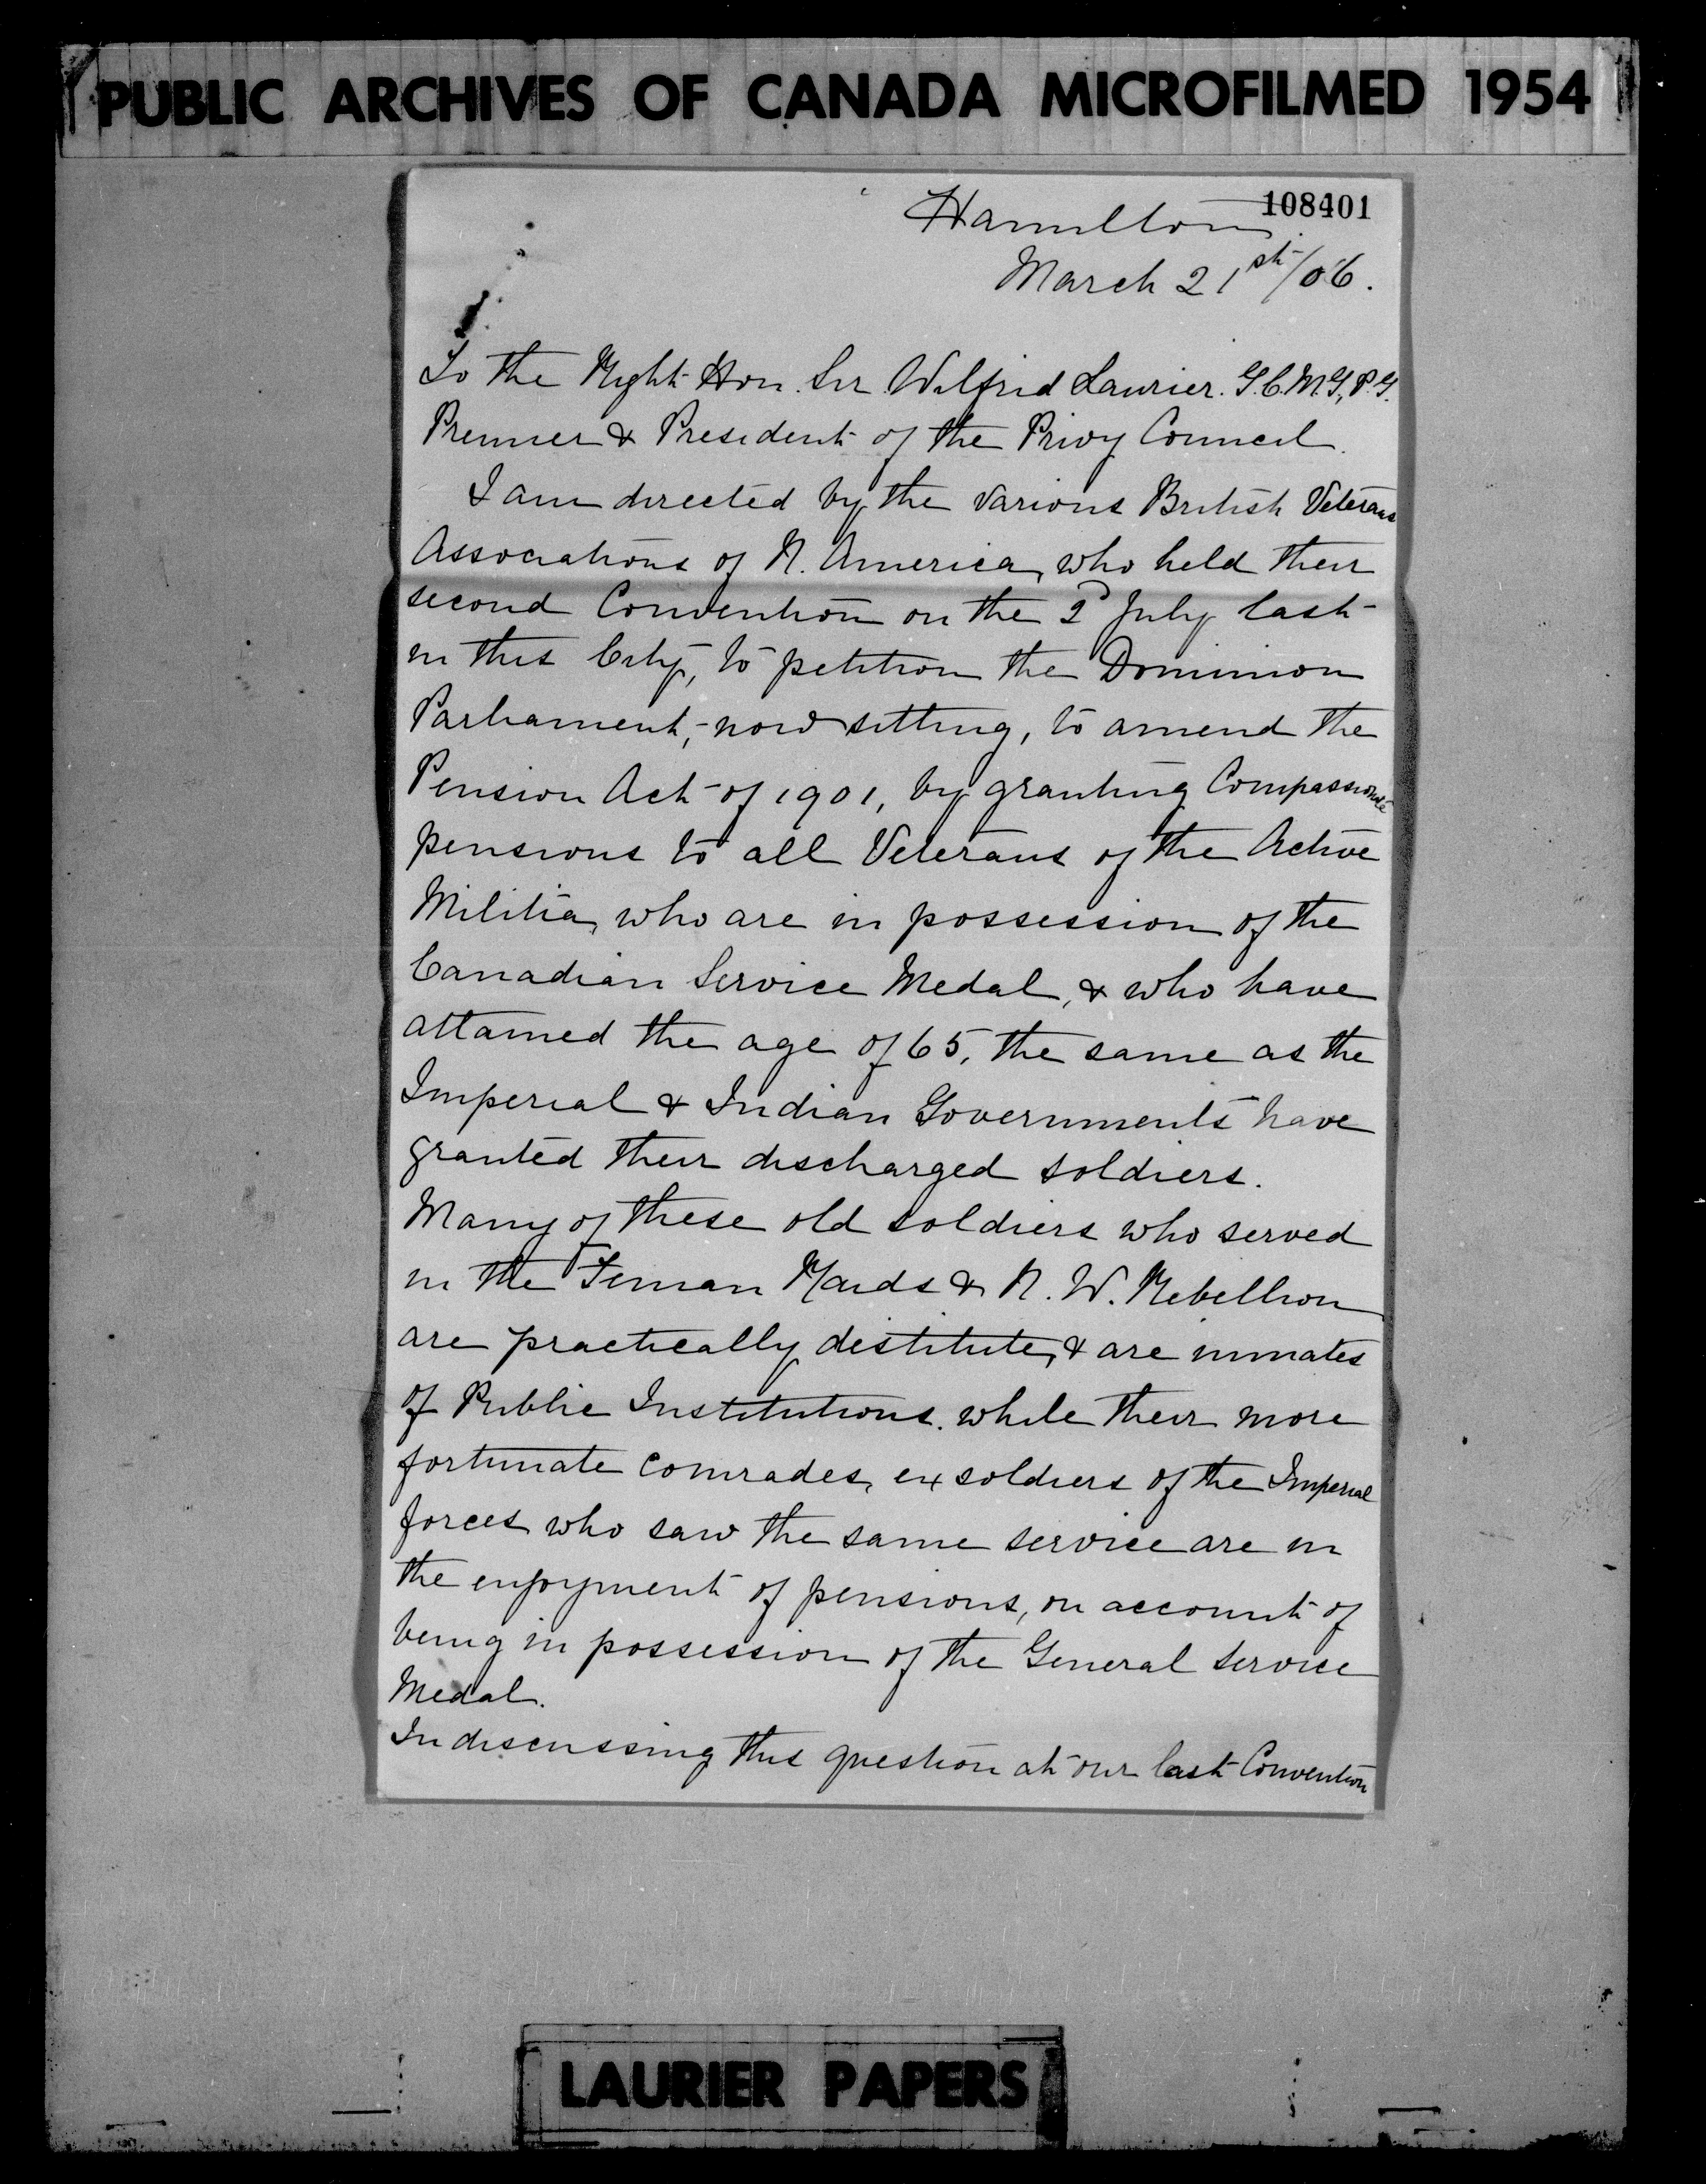 PUBLIC ARCHIVES OF CANADA MICROFILMED 1954
108401
Hamilton
March 21st/06.
To the Right Hon. Sir Wilfrid Laurier. G.C.M.G, P.G.
Premier & President of the Privy Council.
I am directed by the various British Veterans
Associations of N. America, who held their
second Convention on the 2d July last
in this City, to petition the Dominion
Parliament, now sitting, to amend the
Pension Act of 1901, by granting Compassionate
pensions to all Veterans of the Active
Militia, who are in possession of the
Canadian Service Medal, & who have
attained the age of 65, the same as the
Imperial & Indian Governments have
granted their discharged soldiers.
Many of these old soldiers who served
in the Fenian Raids & N. W. Rebellion
are practically destitute, & are inmates
of Public Institutions. while their more
fortunate comrades, ex soldiers of the Imperial
forces who saw the same service are in
the enjoyment of pensions, on account of
being in possession of the General Service
Medal.
In discussing this question at our last Convention
LAURIER PAPERS